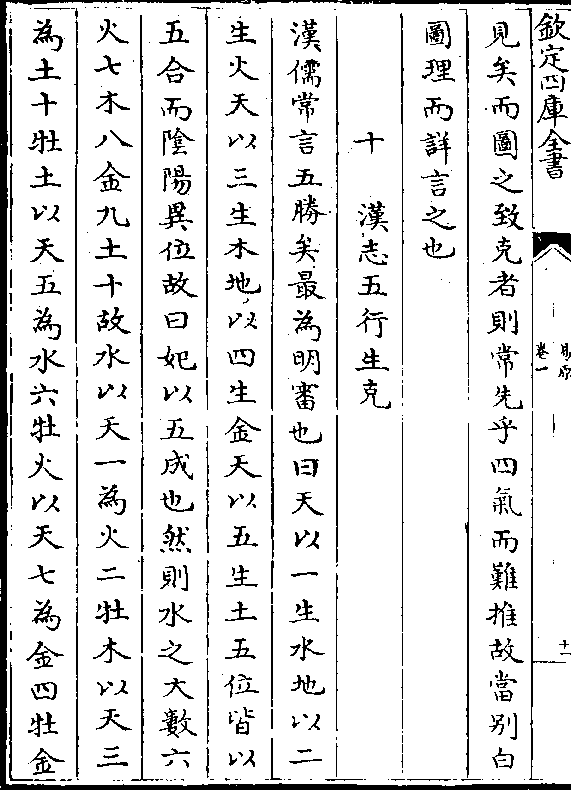 欽定四庫全書
卷一
十一
見矣而圖之致克者則常先乎四氣而難推故當別白
圖理而詳言之也
十　漢志五行生克
漢儒常言五勝矣最為明審也曰天以一生水地以二
生火天以三生木地以四生金天以五生土五位皆以
五合而陰陽異位故曰妃以五成也然則水之大數六
火七木八金九土十故水以天一為火二牡木以天三
為土十牡土以天五為水六牡火以天七為金四牡金